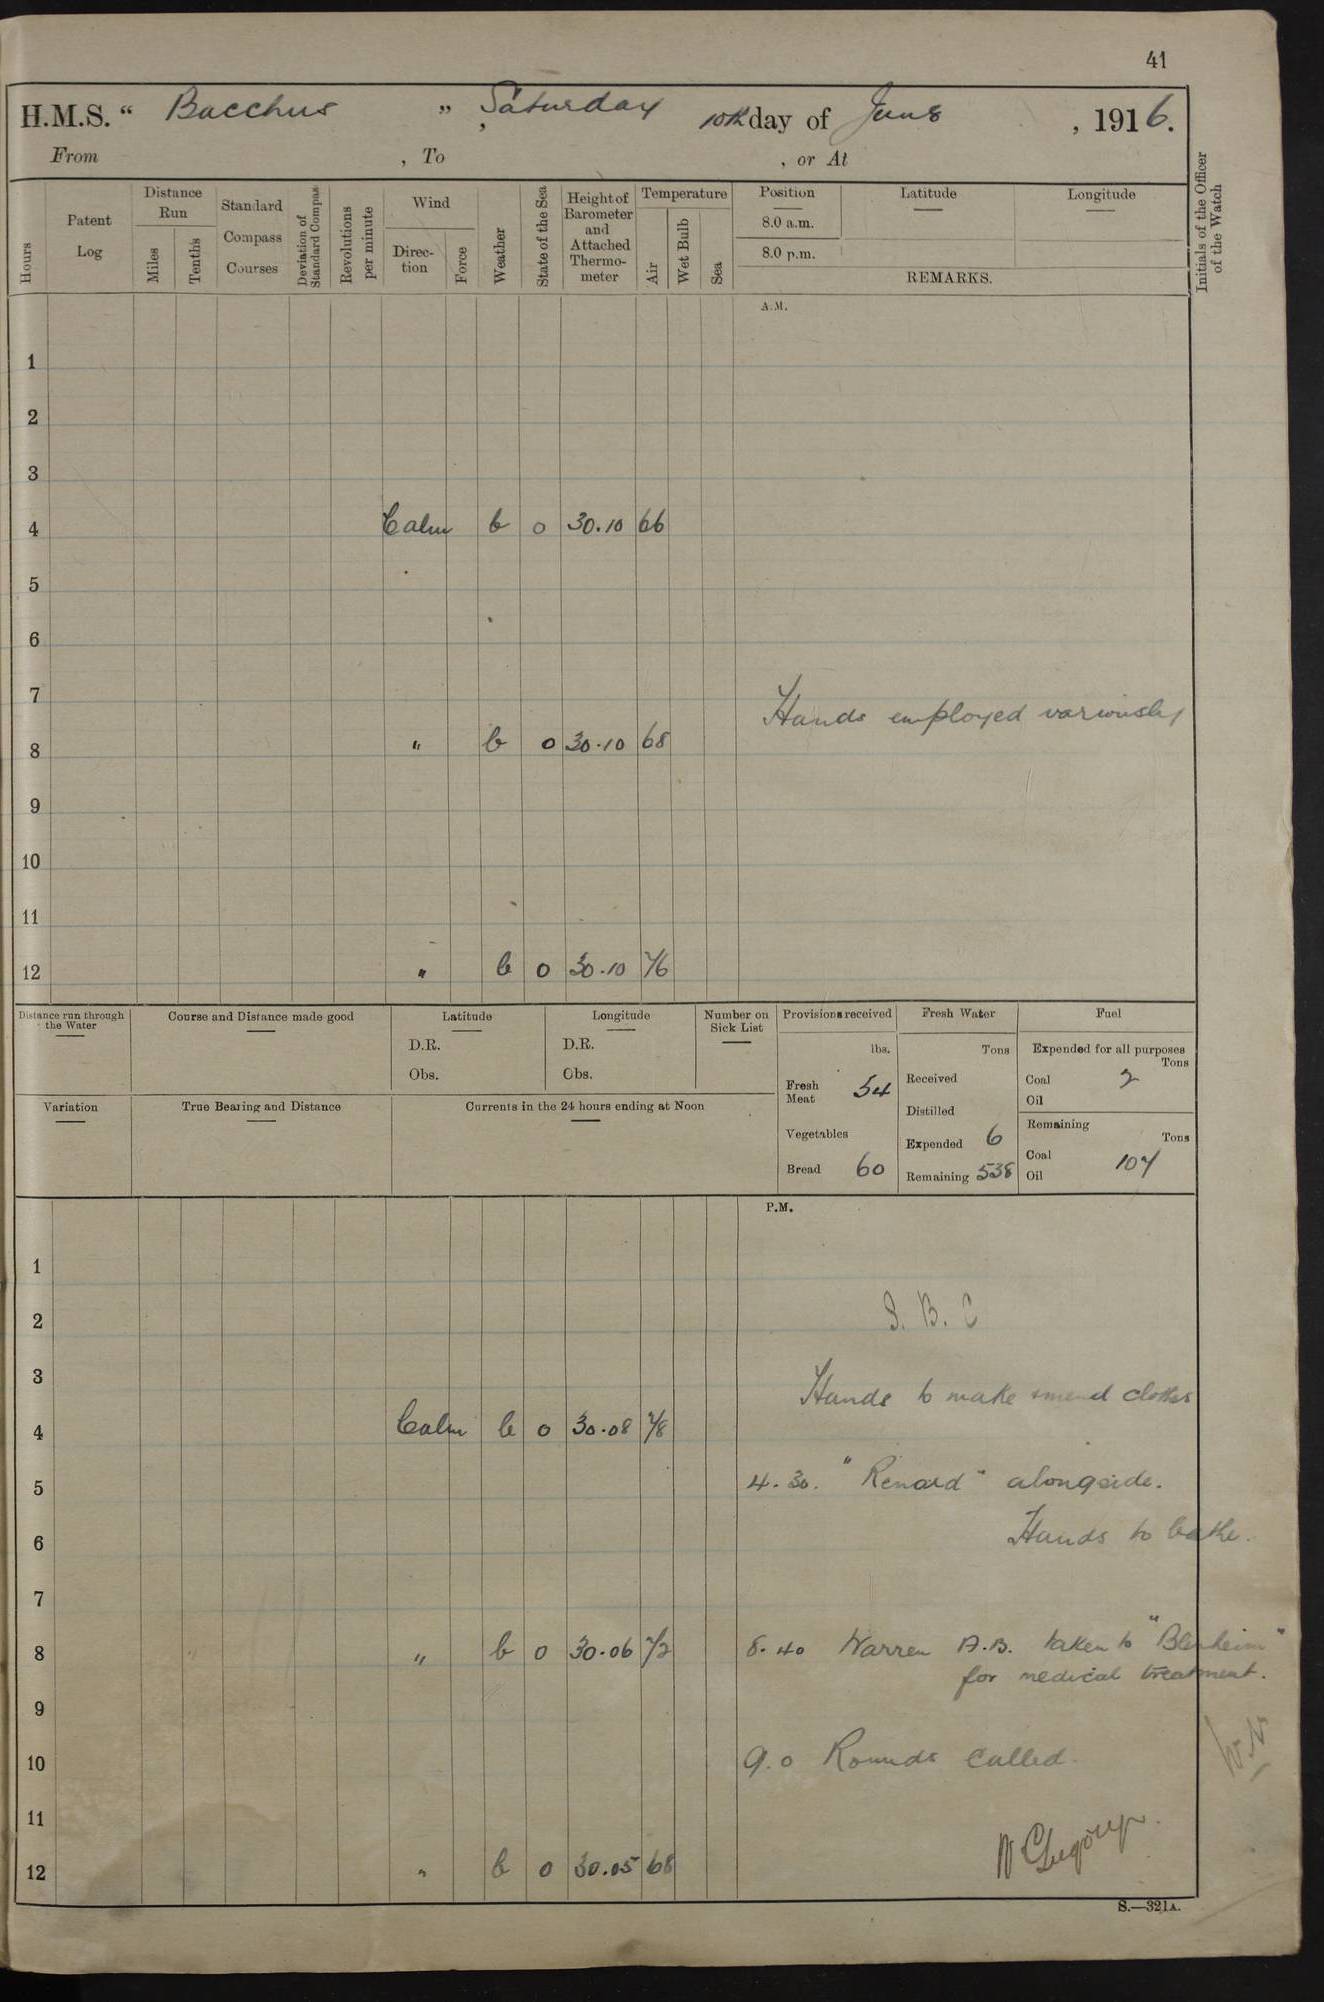 41
H.M.S. “ Bacchus ” , Saturday 10th day of June , 1916.
From , To , or At
Hours
Patent Log
Distance Run
Miles
Tenths
Standard Compass Courses
Deviation of Standard Compass
Revolutions per minute
Wind
Direc-tion
Force
Weather
State of the Sea
Height of Barometer and Attached Thermo-meter
Temperature
Air
Wet Bulb
Sea
Position
8.0 a.m.
8.0 p.m.
Latitude
Longitude
REMARKS.
Initials of the Officer of the Watch
A.M.
1
2
3
4 Calm b 0 30.10 66
5
6
7
Hands employed variously
8 " b 0 30.10 68
9
10
11
12 " b 0 30.10 76
Distance run through the Water
Course and Distance made good
Latitude
D.R.
Obs.
Longitude
D.R.
Obs.
Number on Sick List
Provisions received
lbs.
Fresh Meat 54
Vegetables
Bread 60
Fresh Water
Tons
Received
Distilled
Expended 6
Remaining 538
Fuel
Expended for all purposes
Tons
Coal 2
Oil
Remaining
Tons
Coal 107
Oil
Variation
True Bearing and Distance
Currents in the 24 hours ending at Noon
P.M.
1
2 S. B. C
3
Hands to make & mend clothes
4 Calm b 0 30.08 78
5 4.30. "Renard" alongside.
6 Hands to bathe.
7
8 " b 0 30.06 72 8.40 Warren A.B. taken to "Blenheim"
for medical treatment.
9
10 9.0 Rounds called.
11
12 " b 0 30.05 68
S.—321A.